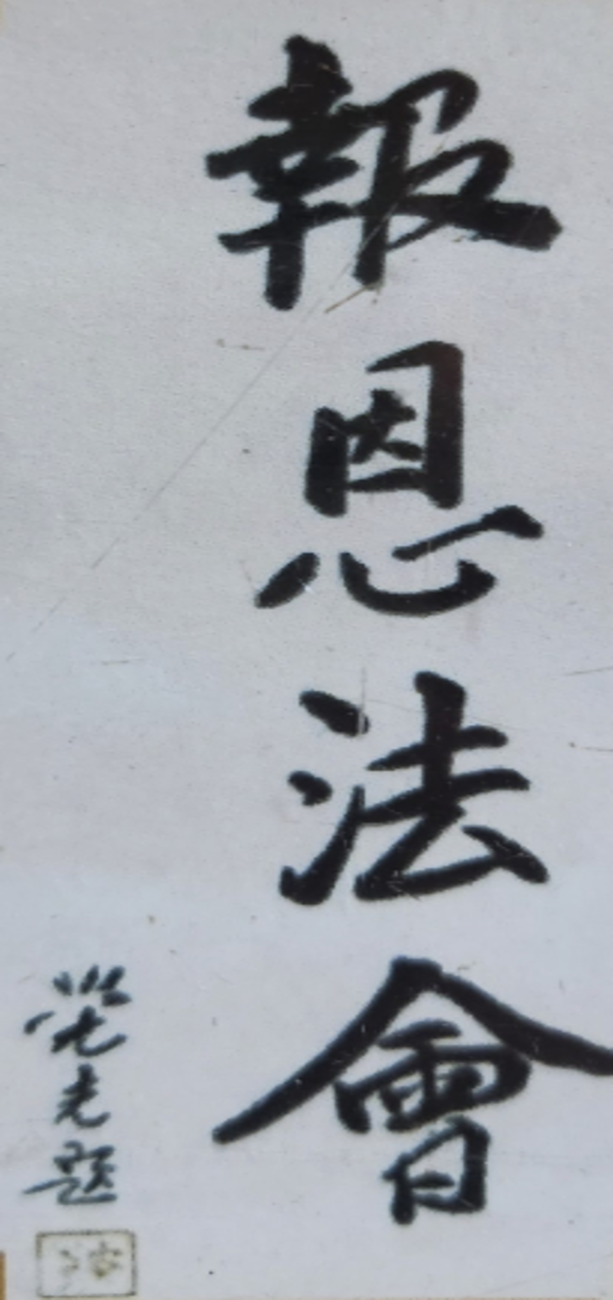 報恩法會
覺光題